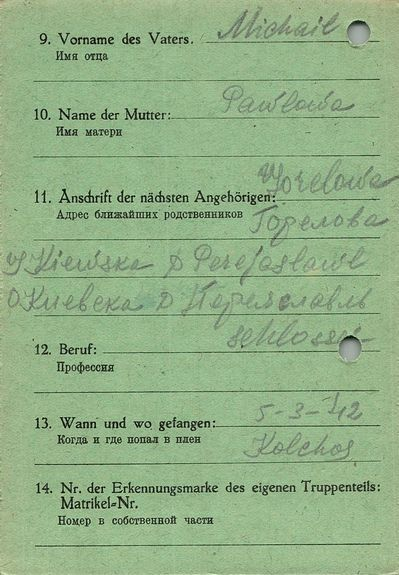 9. Vorname des Vaters. Michail
Имя отца
10. Name der Mutter: Pawlowa
Имя матери
11. Anschrift der nächsten Angehörigen: Gorelowa
Адрес ближайших родственников Горелова
Kiewska Perejaslawl
О Киевска Переяславль
schlosser
12. Beruf:
Профессия
13. Wann und wo gefangen: 5-3-42
Когда и где попал в плен Kolchos
14. Nr. der Erkennungsmarke des eigenen Truppenteils:
Matrikel=Nr.
Номер в собственной части